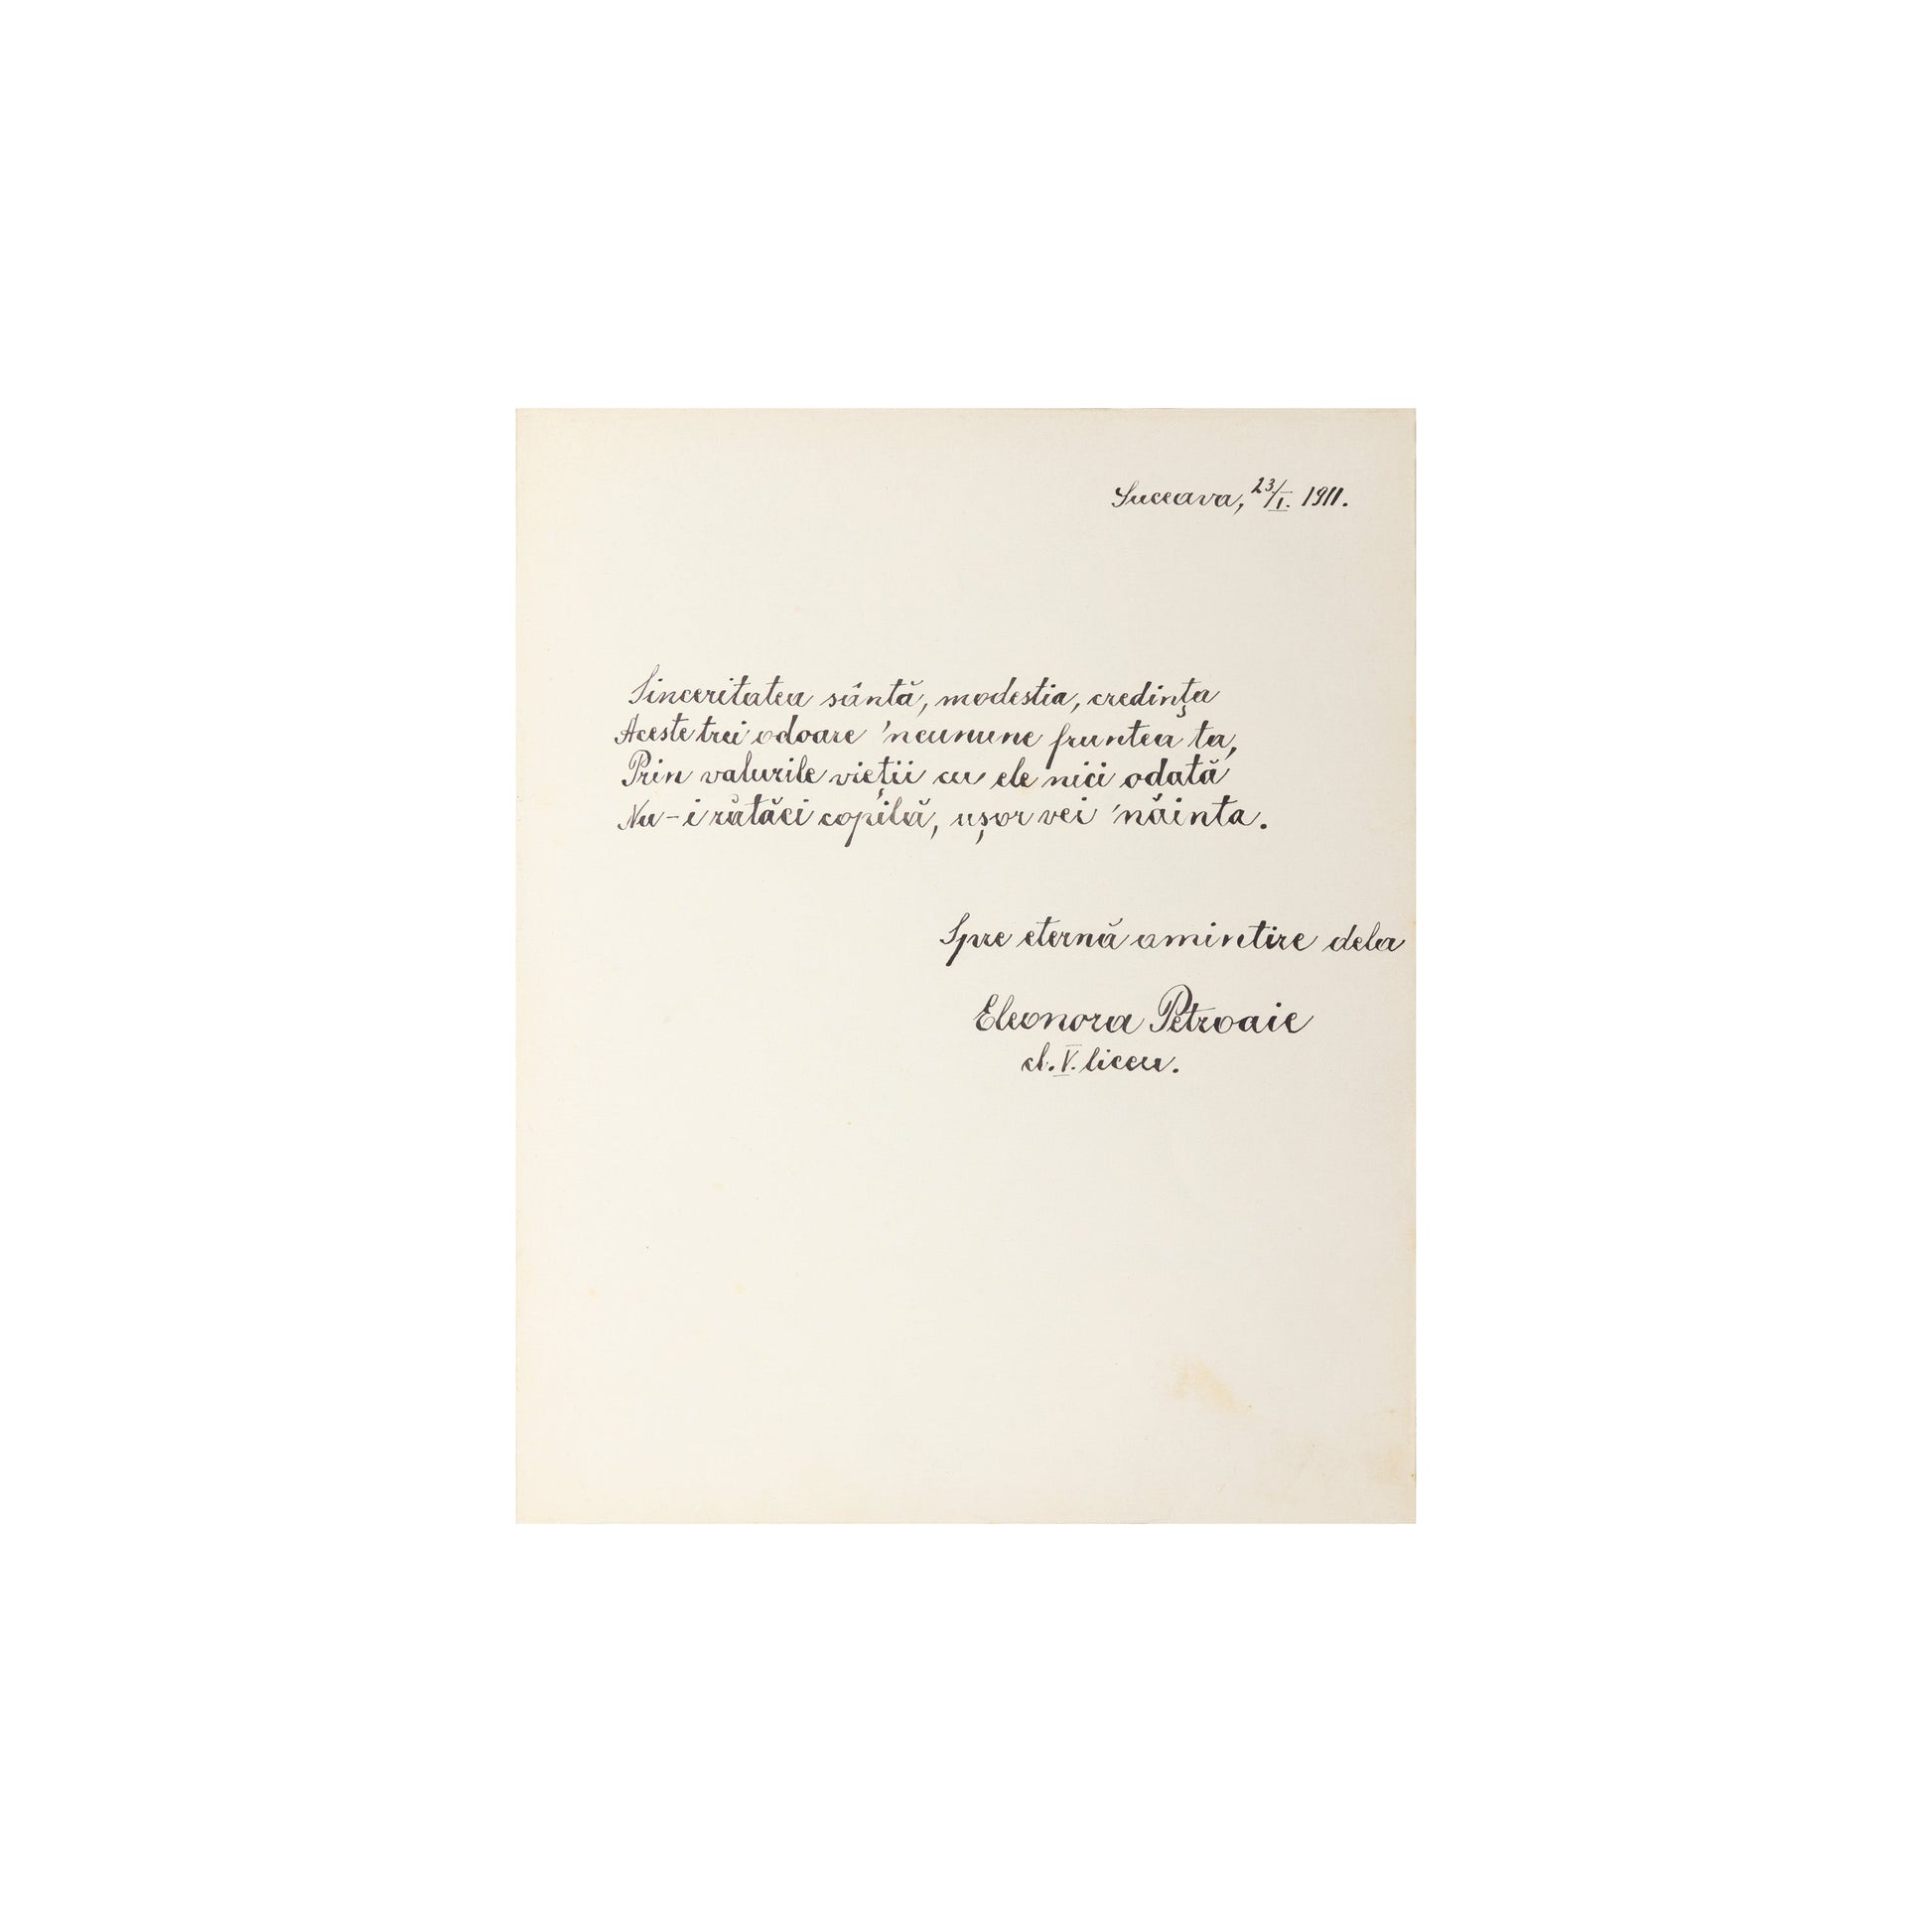 Suceava, 23/I. 1911.
Sinceritatea sântă, modestia, credința
Aceste trei odoare 'ncunune fruntea ta,
Prin valurile vieții cu ele nici odată
Nu-i rătăci copilă, ușor vei 'năinta.
Spre eternă amintire dela
Eleonora Petroaie
cl. V. liceu.